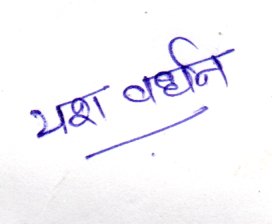 यश वर्धन